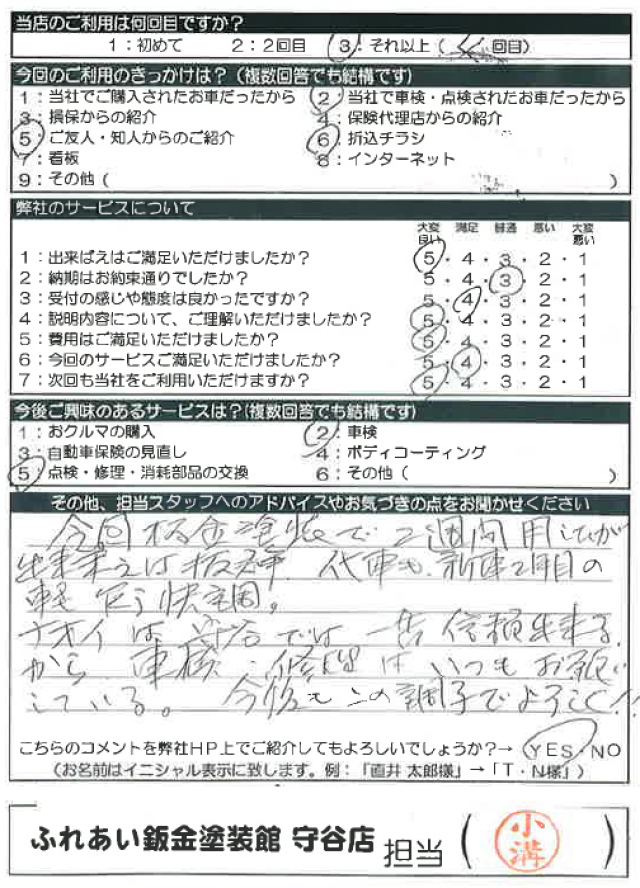 当店のご利用は何回目ですか？
1：初めて　2：2回目　3：それ以上（　回目）
今回のご利用のきっかけは？（複数回答でも結構です）
1：当社でご購入されたお車だったから　2：当社で車検・点検されたお車だったから
3：損保からの紹介　4：保険代理店からの紹介
5：ご友人・知人からのご紹介　6：折込チラシ
7：看板　8：インターネット
9：その他（　）
弊社のサービスについて
大変良い　満足　普通　悪い　大変悪い
1：出来ばえはご満足いただけましたか？　5・4・3・2・1
2：納期はお約束通りでしたか？　5・4・3・2・1
3：受付の感じや態度は良かったですか？　5・4・3・2・1
4：説明内容について、ご理解いただけましたか？　5・4・3・2・1
5：費用はご満足いただけましたか？　5・4・3・2・1
6：今回のサービスご満足いただけましたか？　5・4・3・2・1
7：次回も当社をご利用いただけますか？　5・4・3・2・1
今後ご興味のあるサービスは？（複数回答でも結構です）
1：おクルマの購入　2：車検
3：自動車保険の見直し　4：ボディコーティング
5：点検・修理・消耗部品の交換　6：その他（　）
その他、担当スタッフへのアドバイスやお気づきの点をお聞かせください
今回板金塗装で2週間用したが
出来栄えは抜群. 代車も. 新車2年目の
軽で快調。
ナオイは守谷では一番信頼出来る.
から 車検・修理はいつもお願い
している。今後もこの調子でよろしく!!
こちらのコメントを弊社HP上でご紹介してもよろしいでしょうか？→ YES・NO
（お名前はイニシャル表示に致します。例：「直井 太郎様」→「T・N様」）
ふれあい鈑金塗装館 守谷店 担当（小溝）